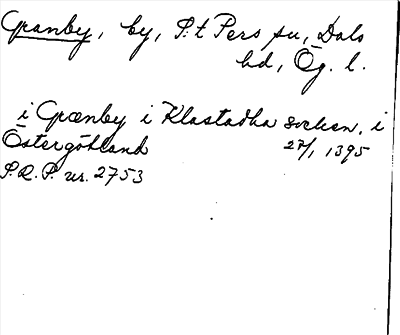 Granby, by, S:t Pers sn, Dals
hd, Ög. l.
i Grænby i Klastadha socken, i
Östergöthland 27/1 1395
S.R.P. nr. 2753